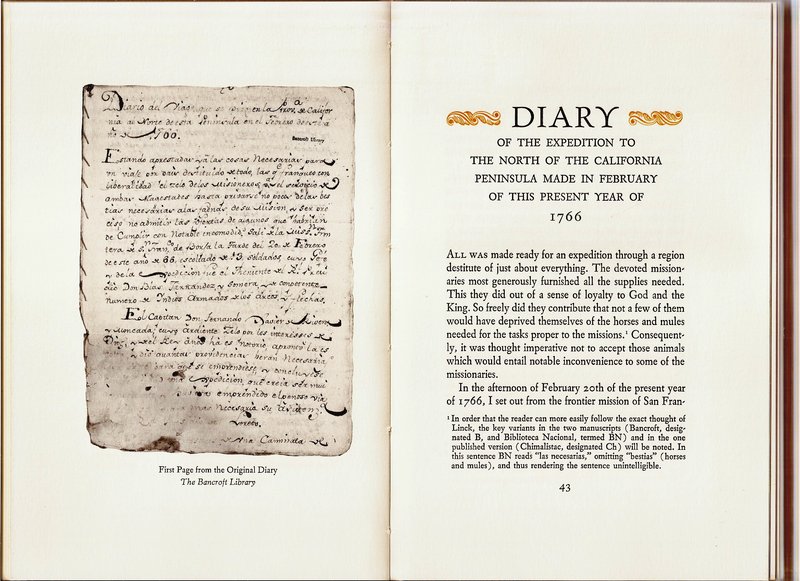 Diario del Viage, que se hizo en la Prov.a de Califor
nia al Norte de esta Peninsula en el Febrero de este
año de 1766.
Bancroft Library
Estando aprestadas ya las cosas Necesarias para
un viaje por pais destituido de todo, las q franquearon con
liberalidad el zelo de los Misioneros, en el servicio de
ambas Magestades hasta privarse no pocos de las bes
tias necesarias a las faenas de su Mision, y ser pre
ciso no admitir las de algunos que habrian
de Cumplir con Notable incomodid. Sali de la Miss.n Fron
tera de S.n Fran.co de Borja la tarde del 20 de Febrero
de este año de 66. escoltado de 13 soldados, cuyo Gefe
y de la Expedicion fue el Theniente
Don Blas Fernandez y Somera, y de competente
numero de Indios Armados de los arcos, y flechas.
El Capitan Don Fernando Xavier de Rivera
y Moncada, cuyo ardiente zelo por los interesses de
Dios, y el Rey años ha es Notorio, aprontó las
providencias Necesarias
para que se emprendiesse, y concluyesse
una expedicion, que creia ser mui
emprendido el penoso via
mas necesaria su
una Caminata de
First Page from the Original Diary
The Bancroft Library
DIARY
OF THE EXPEDITION TO
THE NORTH OF THE CALIFORNIA
PENINSULA MADE IN FEBRUARY
OF THIS PRESENT YEAR OF
1766
ALL WAS made ready for an expedition through a region
destitute of just about everything. The devoted mission-
aries most generously furnished all the supplies needed.
This they did out of a sense of loyalty to God and the
King. So freely did they contribute that not a few of them
would have deprived themselves of the horses and mules
needed for the tasks proper to the missions.¹ Consequent-
ly, it was thought imperative not to accept those animals
which would entail notable inconvenience to some of the
missionaries.
In the afternoon of February 20th of the present year
of 1766, I set out from the frontier mission of San Fran-
¹ In order that the reader can more easily follow the exact thought of
Linck, the key variants in the two manuscripts (Bancroft, desig-
nated B, and Biblioteca Nacional, termed BN) and in the one
published version (Chimalistac, designated Ch) will be noted. In
this sentence BN reads "las necesarias," omitting "bestias" (horses
and mules), and thus rendering the sentence unintelligible.
43